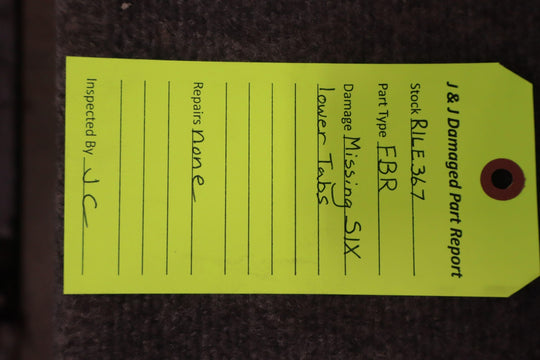 J & J Damaged Part Report
Stock RILE367
Part Type FBR
Damage Missing SIX
lower Tabs
Repairs none
Inspected By JC